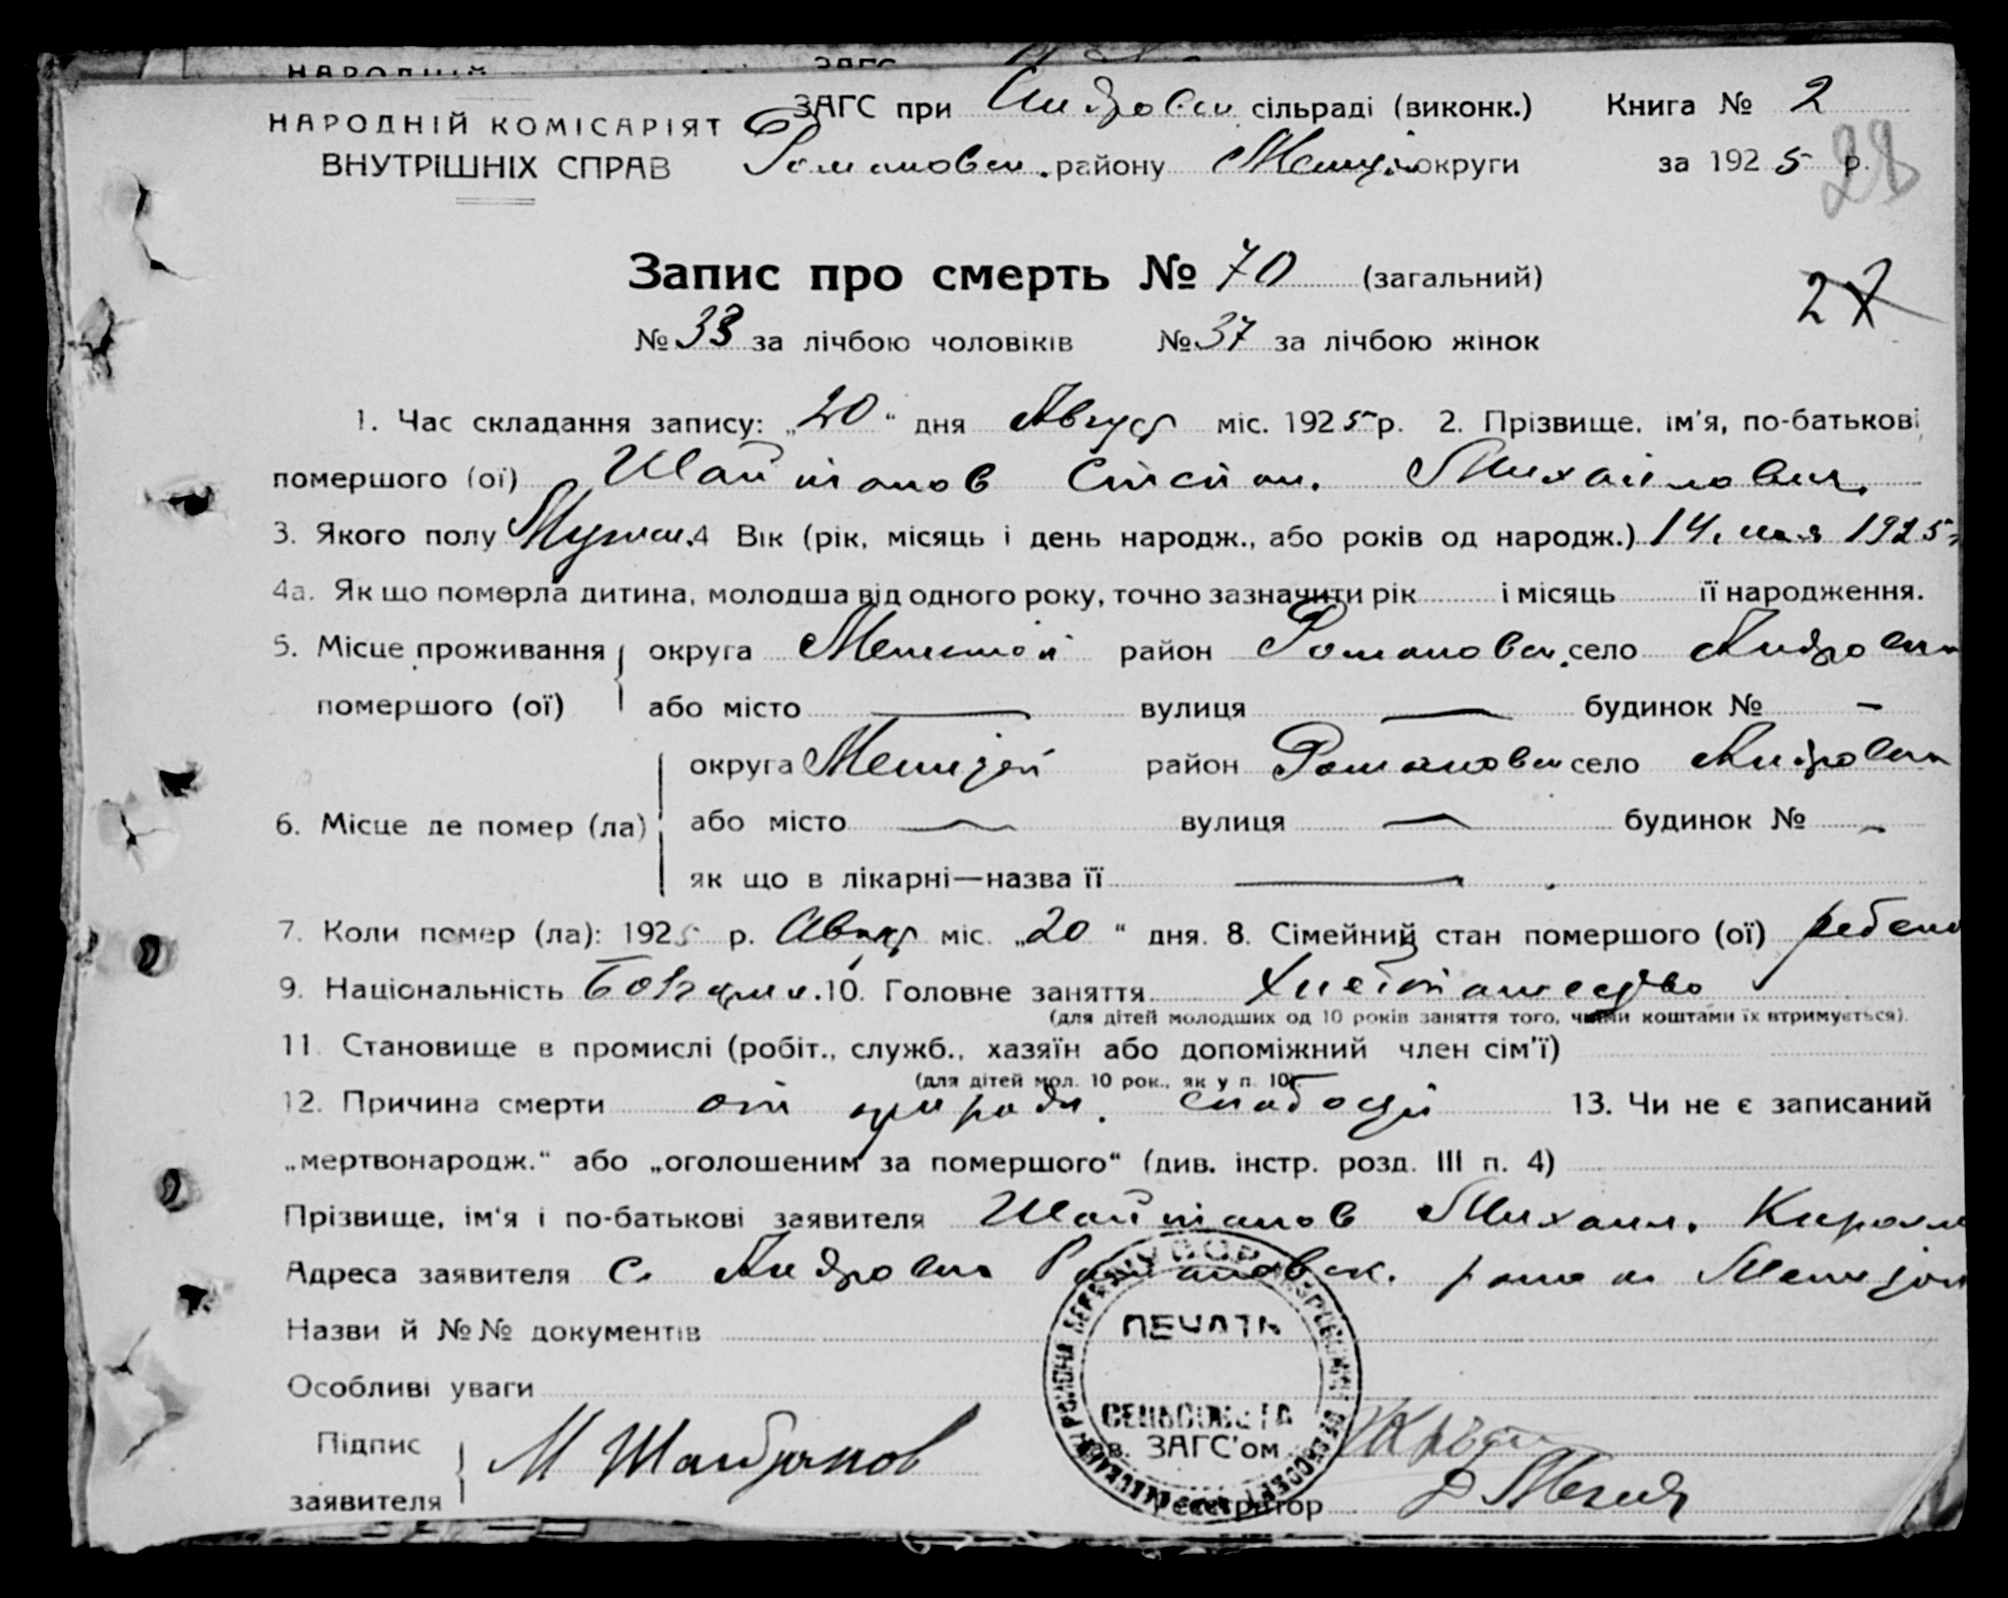 ЗАГС при Андровск. сільраді (виконк.) Книга № 2
НАРОДНІЙ КОМІСАРІЯТ
ВНУТРІШНІХ СПРАВ Романовск. району округи за 1925 р.
28
Запис про смерть № 70 (загальний)
27
№ 33 за лічбою чоловіків № 37 за лічбою жінок
1. Час складання запису: „20“ дня Август міс. 1925 р. 2. Прізвище, ім'я, по-батькові
помершого (ої) Шайтанов Степан. Михайлович.
3. Якого полу Мужск. 4 Вік (рік, місяць і день народж., або років од народж.) 14. мая 1925
4а. Як що померла дитина, молодша від одного року, точно зазначити рік і місяць її народження.
5. Місце проживання округа район Романовск. село Андровка
помершого (ої) або місто — вулиця — будинок № —
округа район Романовск село Андровка
6. Місце де помер (ла) або місто — вулиця — будинок № —
як що в лікарні—назва її —
7. Коли помер (ла): 1925 р. Август міс. „20“ дня. 8. Сімейний стан помершого (ої) ребенок
9. Національність 10. Головне заняття Хлебопашество
(для дітей молодших од 10 років заняття того, чиїми коштами їх втримується).
11. Становище в промислі (робіт., служб., хазяїн або допоміжний член сім'ї)
(для дітей мол. 10 рок., як у п. 10).
12. Причина смерти от природн. слабости 13. Чи не є записаний
„мертвонародж.“ або „оголошеним за помершого“ (див. інстр. розд. III п. 4)
Прізвище, ім'я і по-батькові заявителя Шайтанов Михаил.
Адреса заявителя с. Андровка Романовск. района
Назви й №№ документів
Особливі уваги
ПЕЧАТЬ
СЕЛЬСОВЕТА
Підпис
заявителя М Шайтанов
Зав. ЗАГС'ом
Реєстратор